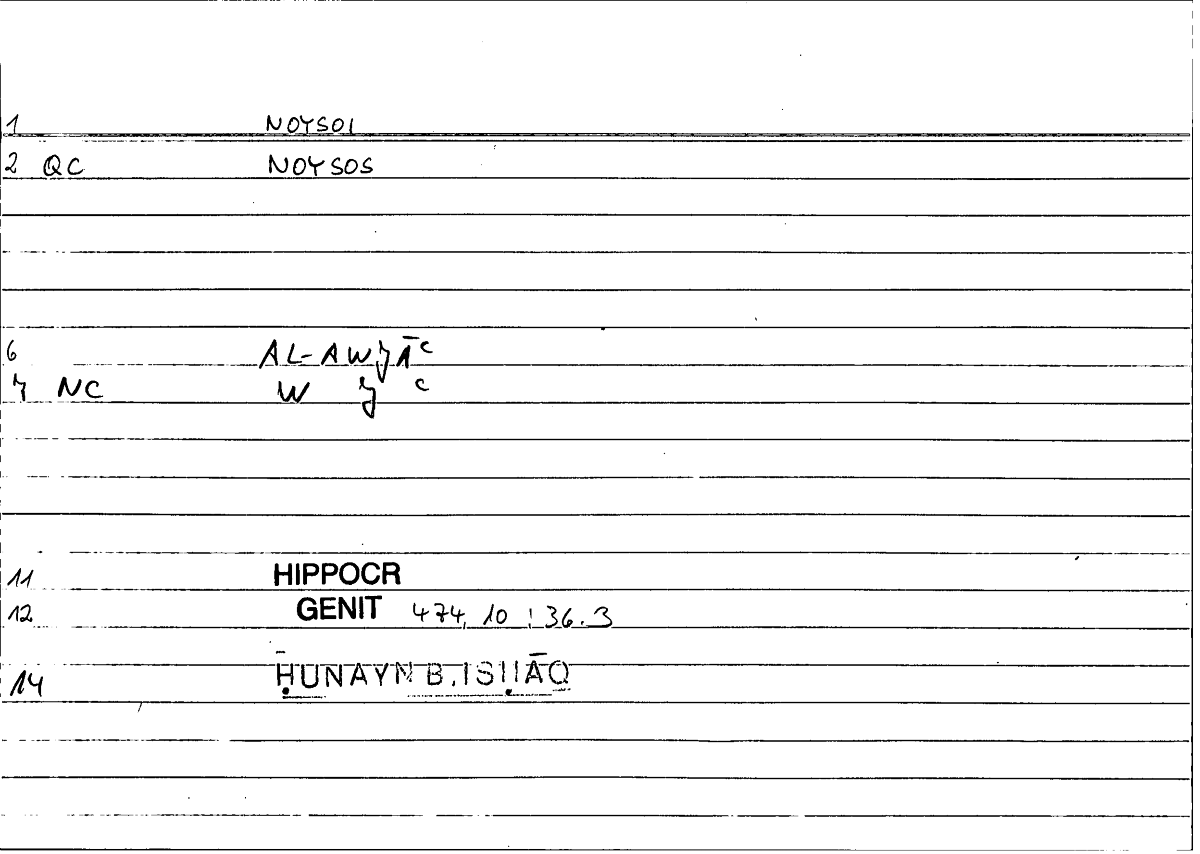 1 NOYSOI
2 QC NOYSOS
6 AL-AWJĀʿ
7 NC W J ʿ
11 HIPPOCR
12 GENIT 474, 10 ; 36.3
14 ḤUNAYN B. ISḤĀQ